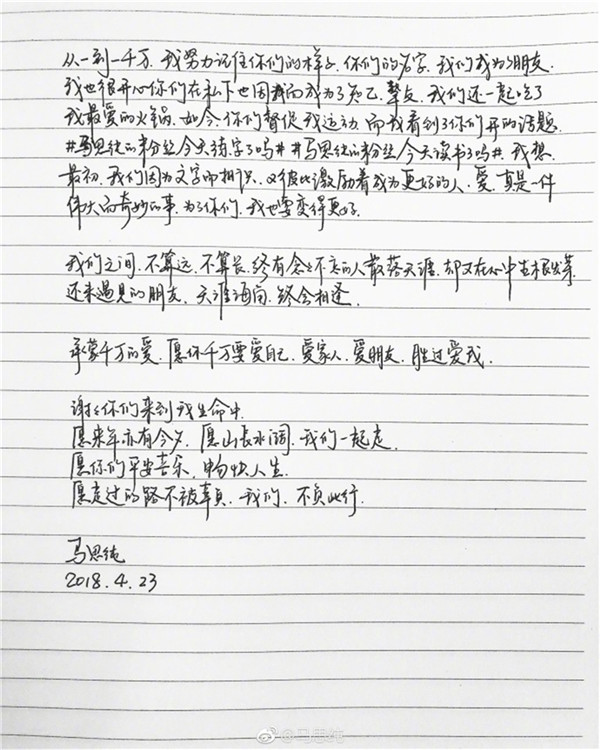 从一到一千万.我努力记住你们的样子.你们的名字.我们成为朋友.
我也很开心你们在私下也因我而成为了知己.挚友.我们还一起吃了
我最爱的火锅.如今.你们督促我运动.而我看到了你们开的话题.
#马思纯的粉丝今天练字了吗##马思纯的粉丝今天读书了吗#.我想.
最初.我们因为文字而相识.又彼此激励着成为更好的人.爱.真是一件
伟大而奇妙的事.为了你们.我也要变得更好.
我们之间.不算远.不算长.终有念念不忘的人散落天涯.却又在心中生根发芽.
还未遇见的朋友.天涯海角.终会相逢.
承蒙千万的爱.愿你千万要爱自己.爱家人.爱朋友.胜过爱我.
谢谢你们来到我生命中.
愿来年亦有今夕.愿山长水阔.我们一起走.
愿你们平安喜乐.畅快人生.
愿走过的路不被辜负.我们.不负此行.
马思纯
2018.4.23
@马思纯